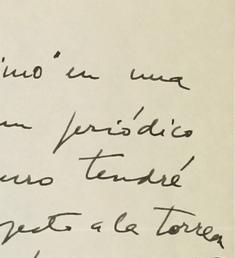 imo" en una
un periódico
uro tendré
yecto a la torrea